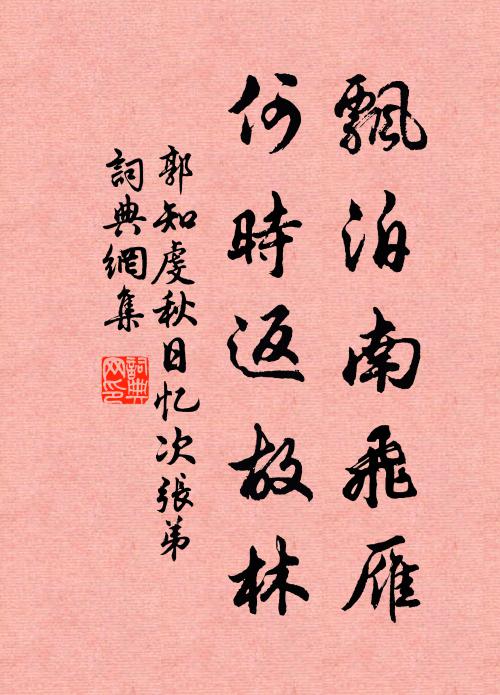 飄泊南飛雁
何時返故林
郭知虔秋日忆次張弟
詞典網集
詞典网印